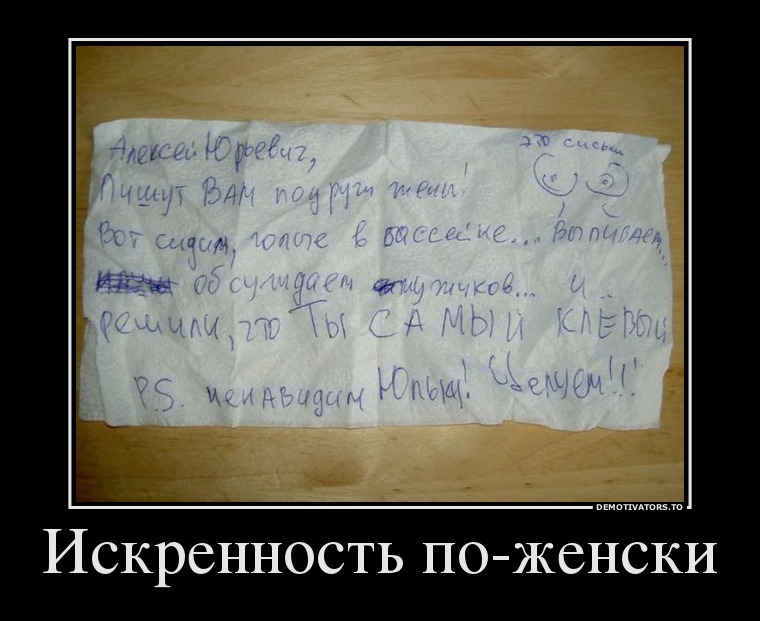 это сиськи
Алексей Юрьевич,
Пишут ВАМ подруги жены!
Вот сидим, голые в бассейне... Выпиваем...
обсуждаем мужчков... и...
решили, что Ты САМЫЙ КЛЕВЫЙ
P.S. ненавидим Юльку! Целуем!!!
DEMOTIVATORS.TO
Искренность по-женски